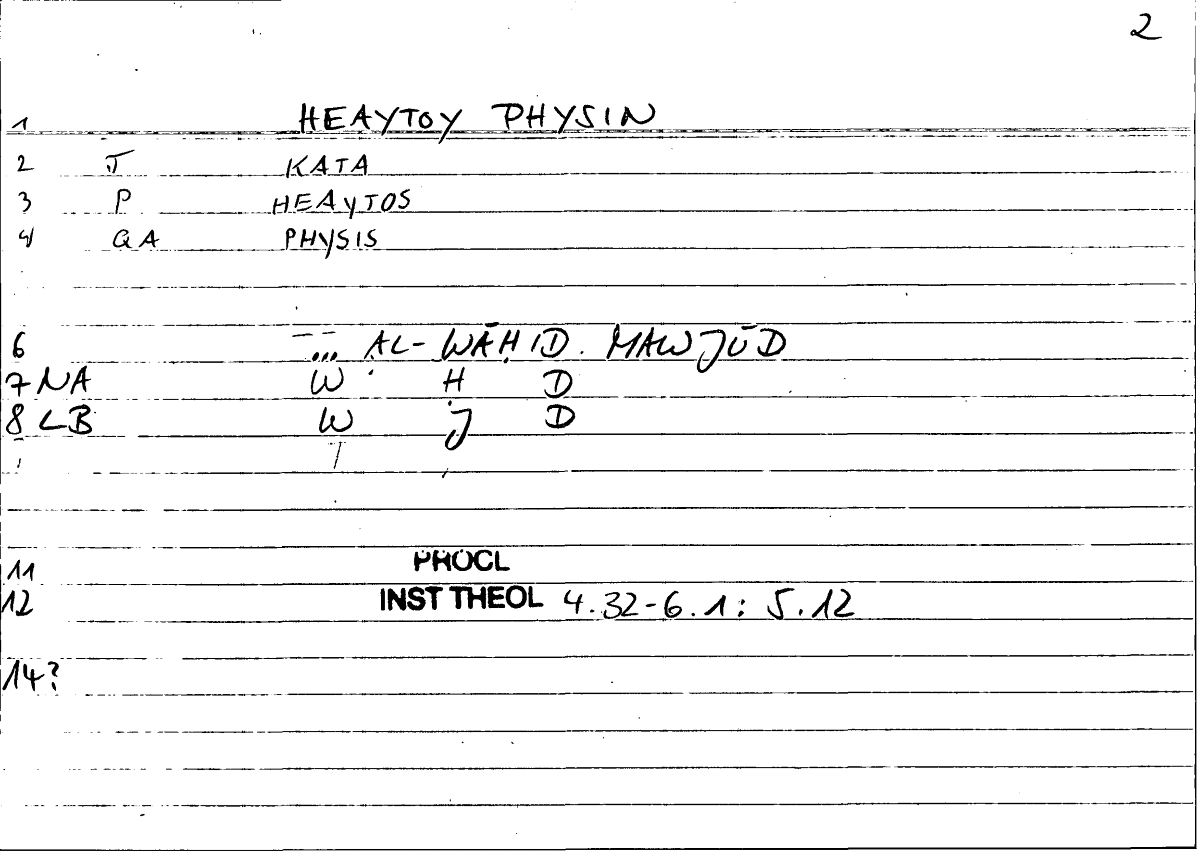 2
1 HEAYTOY PHYSIN
2 T KATA
3 P HEAYTOS
4 QA PHYSIS
6 ... AL-WĀḤID MAWJŪD
7 NA W Ḥ D
8 LB W J D
11 PROCL
12 INST THEOL 4.32-6.1: 5.12
14?